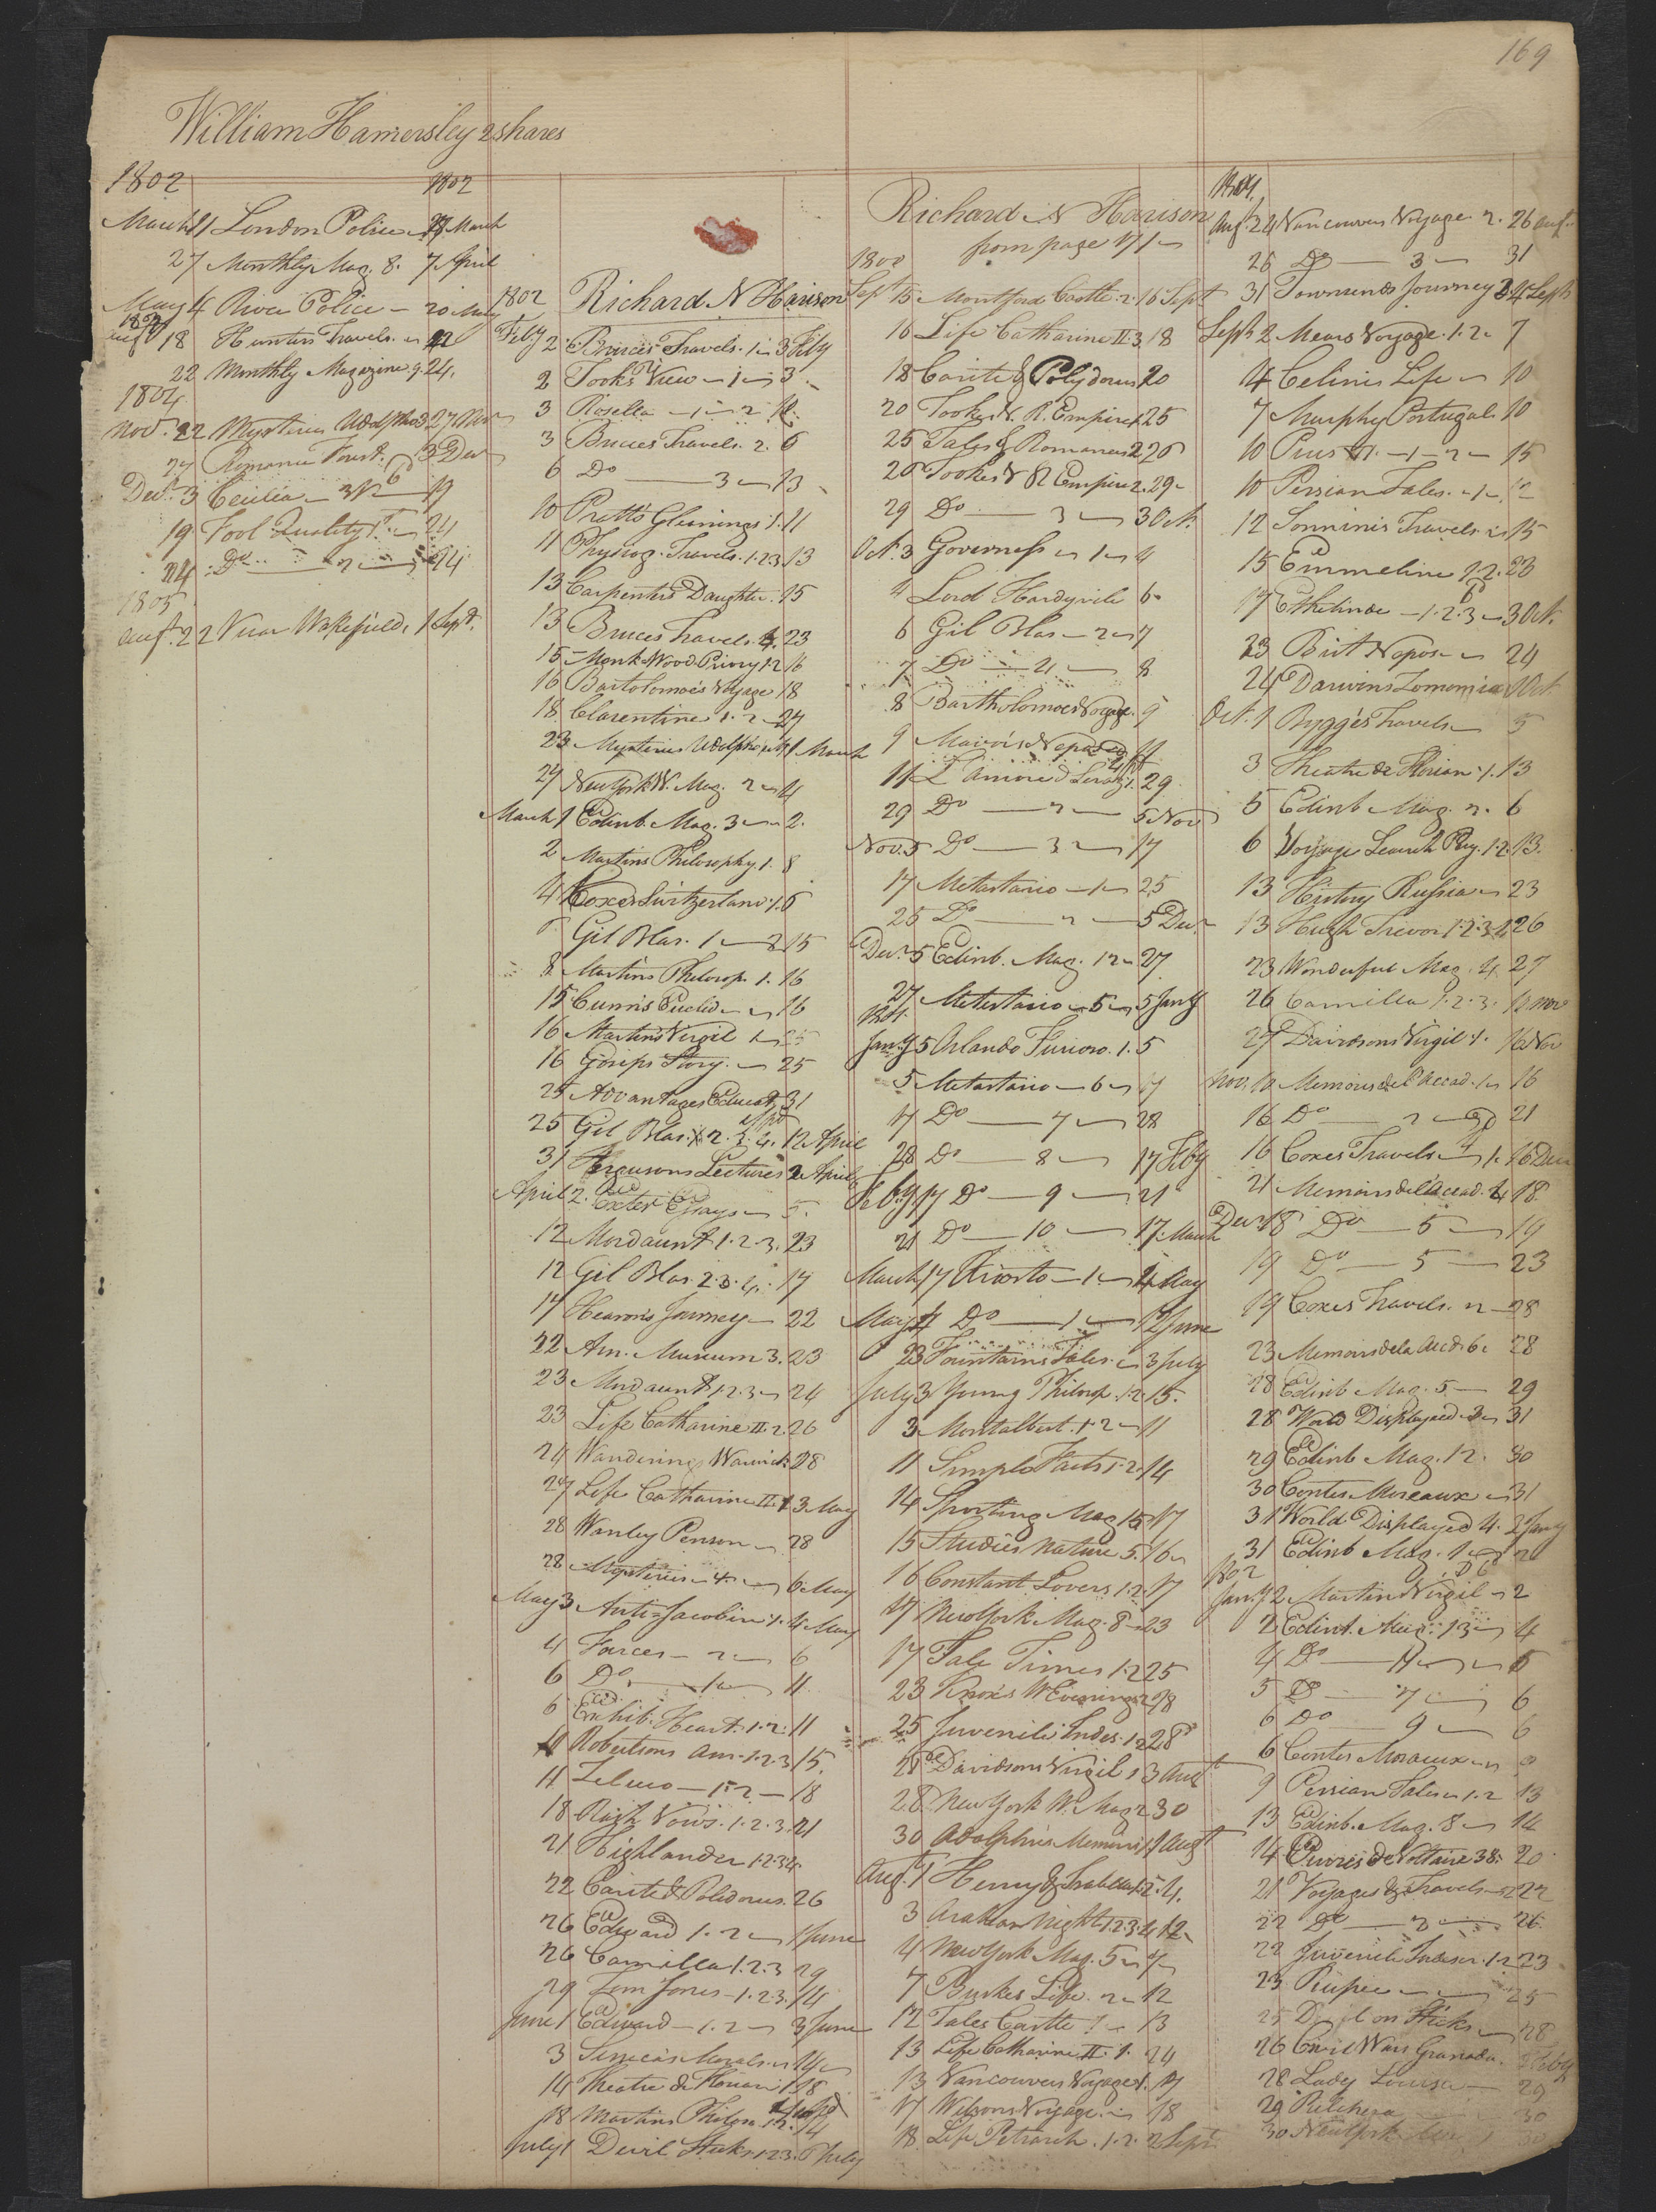 169
William Hamersley 2 shares
1802 1802
March 21 London Police 27 March
27 Monthly Mag. 8. 7 April
May 4 River Police 20 May
18 Hunters Travels 22
22 Monthly Magazine 9. 24.
1804
Nov. 22 Mysteries Udolpho 3 27 Nov
27 Romance Forest. 3 Dec
Decr. 3 Cecilia 3 Vo 19
19 Fool Quality 1 24
24 Do 2 24
1805
Augt. 22 Vicar Wakefield 1 Sept.
1802 Richard N Harison
Feby 2 Bruces Travels. 1 3 Feby
2 Tooks View 1 3
3 Rosella 1 2
3 Bruces Travels. 2. 6
6 Do 3 13
10 Pratts Gleanings 1. 11
11 Physiog. Travels. 1.2.3 13
13 Carpenters Daughter. 15
13 Bruces Travels. 4. 23
15 Monk Wood Priory 1.2 16
16 Bartolomeis Voyage 18
18 Clarentine 1. 2 27
23 Mysteries Udolpho 1 March
27 New York W. Mag. 2 4
March 1 Edinb. Mag. 3 2.
2 Martins Philosophy 1. 8
4 Coxes Switzerland 1. 6
6 Gil Blas. 1 15
8 Martins Philosop. 1. 16
15 Cunns Euclid 16
16 Martins Virgil 1 25
16 Gosips Story. 25
25 Advantages Educat. 31
25 Gil Blas. 2. 3. 4. 12 April
31 Fergusons Lectures 2 April
April 2. Exeter Essays 5.
12 Mordaunt 1. 2. 3. 23
12 Gil Blas. 2. 3. 4. 17
17 Hearns Journey 22
22 Am. Museum 3. 23
23 Mordaunt 1.2.3 24
23 Life Catharine II. 2. 26
24 Wanderings Warwick 28
27 Life Catharine II. 1 3 May
28 Wanley Penson 28
28 Mysteries 4. 6 May
May 3 Anti-Jacobin 1. 4 May
4 Farces 2 6
6 Do 1 11
6 Exhib. Heart. 1. 2. 11
11 Robertsons Am. 1.2.3 15.
11 Zeluco 1. 2 18
18 Rash Vows. 1. 2. 3. 21
21 Highlander 1.2
22 Carite & Polidorus. 26
26 Edward 1. 2 1 June
26 Camilla 1.2.3 29
29 Tom Jones 1.2.3. 14
June 1 Edward 1. 2 3 June
3 Senecas Morals 14
14 Theatre de Florian 1 18
18 Martins Philos. 1.2. 4
July 1 Devil Sticks 1.2.3. July
Richard N Harison
from page 171
1800
Sept 15 Montford Castle 2. 16 Sept
16 Life Catharine II. 3. 18
18 Carite & Polydorus 20
20 Tookes V. R. Empire 1 25
25 Tales & Romances 2 26
26 Tookes V R Empire 2. 29
29 Do 3 3 Oct.
Oct. 3 Governess 1 4
4 Lord Hardyvile 6
6 Gil Blas 2 7
7 Do 4 8
8 Bartholomeos Voyage. 9
9 11
11 29
29 Do 2 5 Nov
Nov. 5 Do 3 17
17 Metastasio 1 25
25 Do 2 5 Decr
Decr. 5 Edinb. Mag. 12 27
27 Metastasio 5 5 Jany
1801
Jany 5 Orlando Furioso. 1. 5
5 Metastasio 6 17
17 Do 7 28
28 Do 8 17 Feby
Feby 17 Do 9 21
21 Do 10 17 March
March 17 Ariosto 1 4 May
May 4 Do 1 12 June
23 Fountains Tales. 3 July
July 3 Young Philosop. 1.2. 15.
3 Montalbert. 1. 2 11
11 Simple Facts 1.2. 14
14 Sporting Mag. 15 17
15 Studies Nature 5. 16
16 Constant Lovers 1.2. 17
17 New York Mag. 8 23
17 Tale Times 1.2 25
23 Knoxs W Evenings 28
25 Juvenile Indes. 1.2 28
28 Davidsons Virgil 1 3 Augt
28 New York W. Mag 2 30
30 Adolphus Memoirs 1 1 Augt
Aug. 1 Henry & Isabella 1.2. 4.
3 Arabian Night 1.2.3.4 12
4 New York Mag. 5 7
7 Burkes Life. 12
12 Tales Castle 1 13
13 Life Catharine II. 1. 24
13 Vancouvers Voyage 1. 17
17 Wilsons Voyage 18
18 Life Petrarch. 1. 2. 2 Sept
1801.
Aug. 24 Vancouvers Voyage 2. 26 Aug.
26 Do 3 31
31 Townsends Journey 3 4 Sept
Sept 2 Mears Voyage 1. 2 7
4 Celinis Life 10
7 Murphy Portugal 10
10 Pius VI. 1 2 15
10 Persian Tales. 1 12
12 Sonninis Travels 15
15 Emmeline 1.2. 23
17 Ethelinde 1. 2. 3 3 Oct.
23 Brit Nepos 24
24 Darwins Zonomia 1 Oct.
Oct. 1 Byggés Travels 5
3 Theatre de Florian 1. 13
5 Edinb Mag. 2. 6
6 Voyage Search Pey. 1.2. 13.
13 History Russia 23
13 Hugh Trevor 1.2.3.4 26
23 Wonderful Mag. 4. 27
26 Camilla 1. 2. 3. 12 Nov
27 Davidsons Virgil 1. 16 Nov
Nov. 12 Memoirs de l'Accad. 1 16
16 Do 2 21
16 Coxes Travels 1. 16 Decr
21 Memoirs de l'Accad. 4 18
Decr 18 Do 5 19
19 Do 5 23
19 Coxes Travels. 2 28
23 Memoirs de la Accd. 6 28
28 Edinb Mag. 5 29
28 World Displayed 3 31
29 Edinb Mag. 12. 30
30 Contes Moreaux 31
31 World Displayed 4. 2 Jany
31 Edinb Mag. 1 2
1802
Jany 2. Martins Virgil 2
2 Edinb. Mag. 13 4
4 Do 11 5
5 Do 7 6
6 Do 9 6
6 Contes Moraux 9
9 Persian Tales 1.2 13
13 Edinb. Mag. 8 14
14 Euvres de Voltaire 38. 20
21 Voyages & Travels 22
22 Do 3 26.
22 Juvenile Indescr. 1.2 23
23 25
25 Devil on Sticks 28
26 Civil Wars Granada. 2 Feby
28 Lady Louisa 29
29 30
30 New York 30